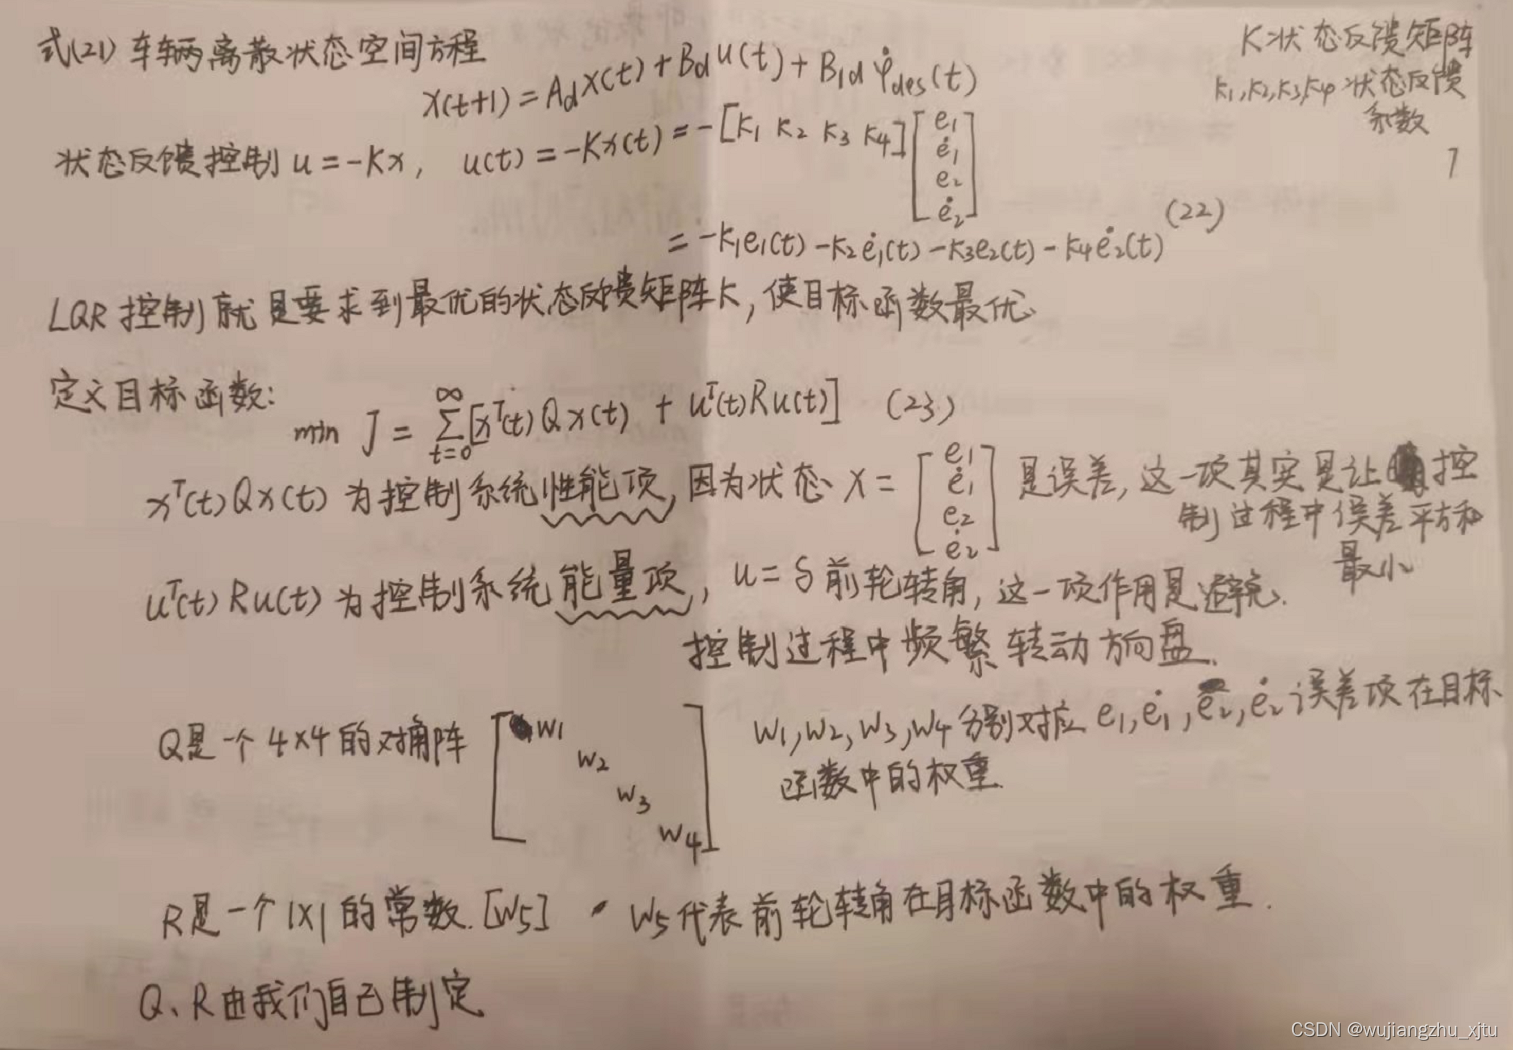 式(21) 车辆离散状态空间方程
x(t+1) = Ad x(t) + Bd u(t) + B1d φ̇des(t)
K状态反馈矩阵
K1,K2,K3,K4 状态反馈
系数
7
状态反馈控制 u = -Kx, u(t) = -Kx(t) = -[K1 K2 K3 K4] [e1 ė1 e2 ė2]
= -K1e1(t) - K2ė1(t) - K3e2(t) - K4ė2(t) (22)
LQR 控制就是要求到最优的状态反馈矩阵K, 使目标函数最优
定义目标函数:
min J = ∑t=0∞ [xT(t)Qx(t) + uT(t)Ru(t)] (23)
xT(t)Qx(t) 为控制系统性能项, 因为状态 X = [e1 ė1 e2 ė2] 是误差, 这一项其实是让控
制过程中误差平方和
最小
uT(t)Ru(t) 为控制系统能量项, u = δ 前轮转角, 这一项作用是避免
控制过程中频繁转动方向盘.
Q是一个 4×4 的对角阵 [w1 w2 w3 w4]
w1,w2,w3,w4 分别对应 e1,ė1,e2,ė2 误差项在目标
函数中的权重.
R是一个1×1的常数.[w5] w5代表前轮转角在目标函数中的权重.
Q、R由我们自己制定
CSDN @wujiangzhu_xjtu